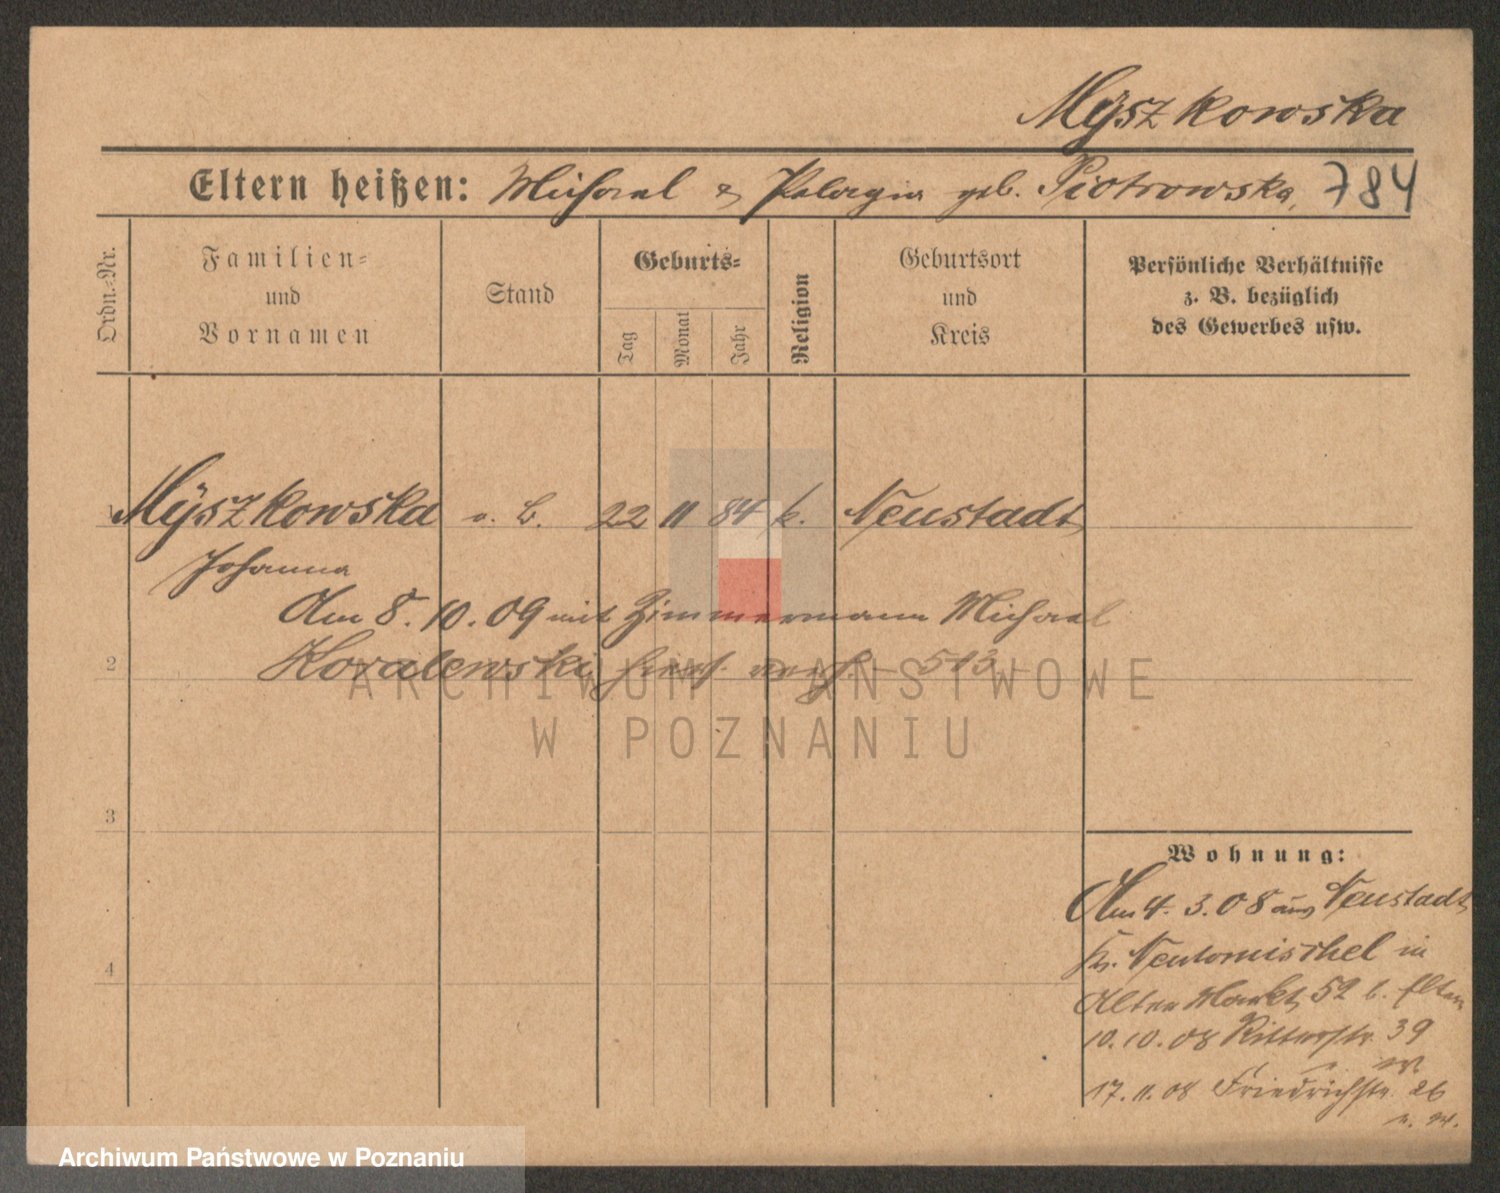 Myszkowska
Eltern heißen: Michael & Pelagia geb. Piotrowska, 784
Ordn.-Nr.
Familien-
und
Vornamen
Stand
Geburts-
Tag
Monat
Jahr
Religion
Geburtsort
und
Kreis
Persönliche Verhältnisse
z. B. bezüglich
des Gewerbes usw.
1 Mÿszkowska o. B. 22 11 84 k. Neustadt
Johanna
Am 8. 10. 09 mit Zimmermann Michael
2 Kovalewski verh. - 513 -
ARCHIWUM PAŃSTWOWE
W POZNANIU
3
Wohnung:
Am 4. 3. 08 aus Neustadt
4 Kr. Neutomischel in
Alter Markt 52 b. Eltern
10. 10. 08 Ritterstr. 39
17. 11. 08 Friedrichstr. 26
Archiwum Państwowe w Poznaniu